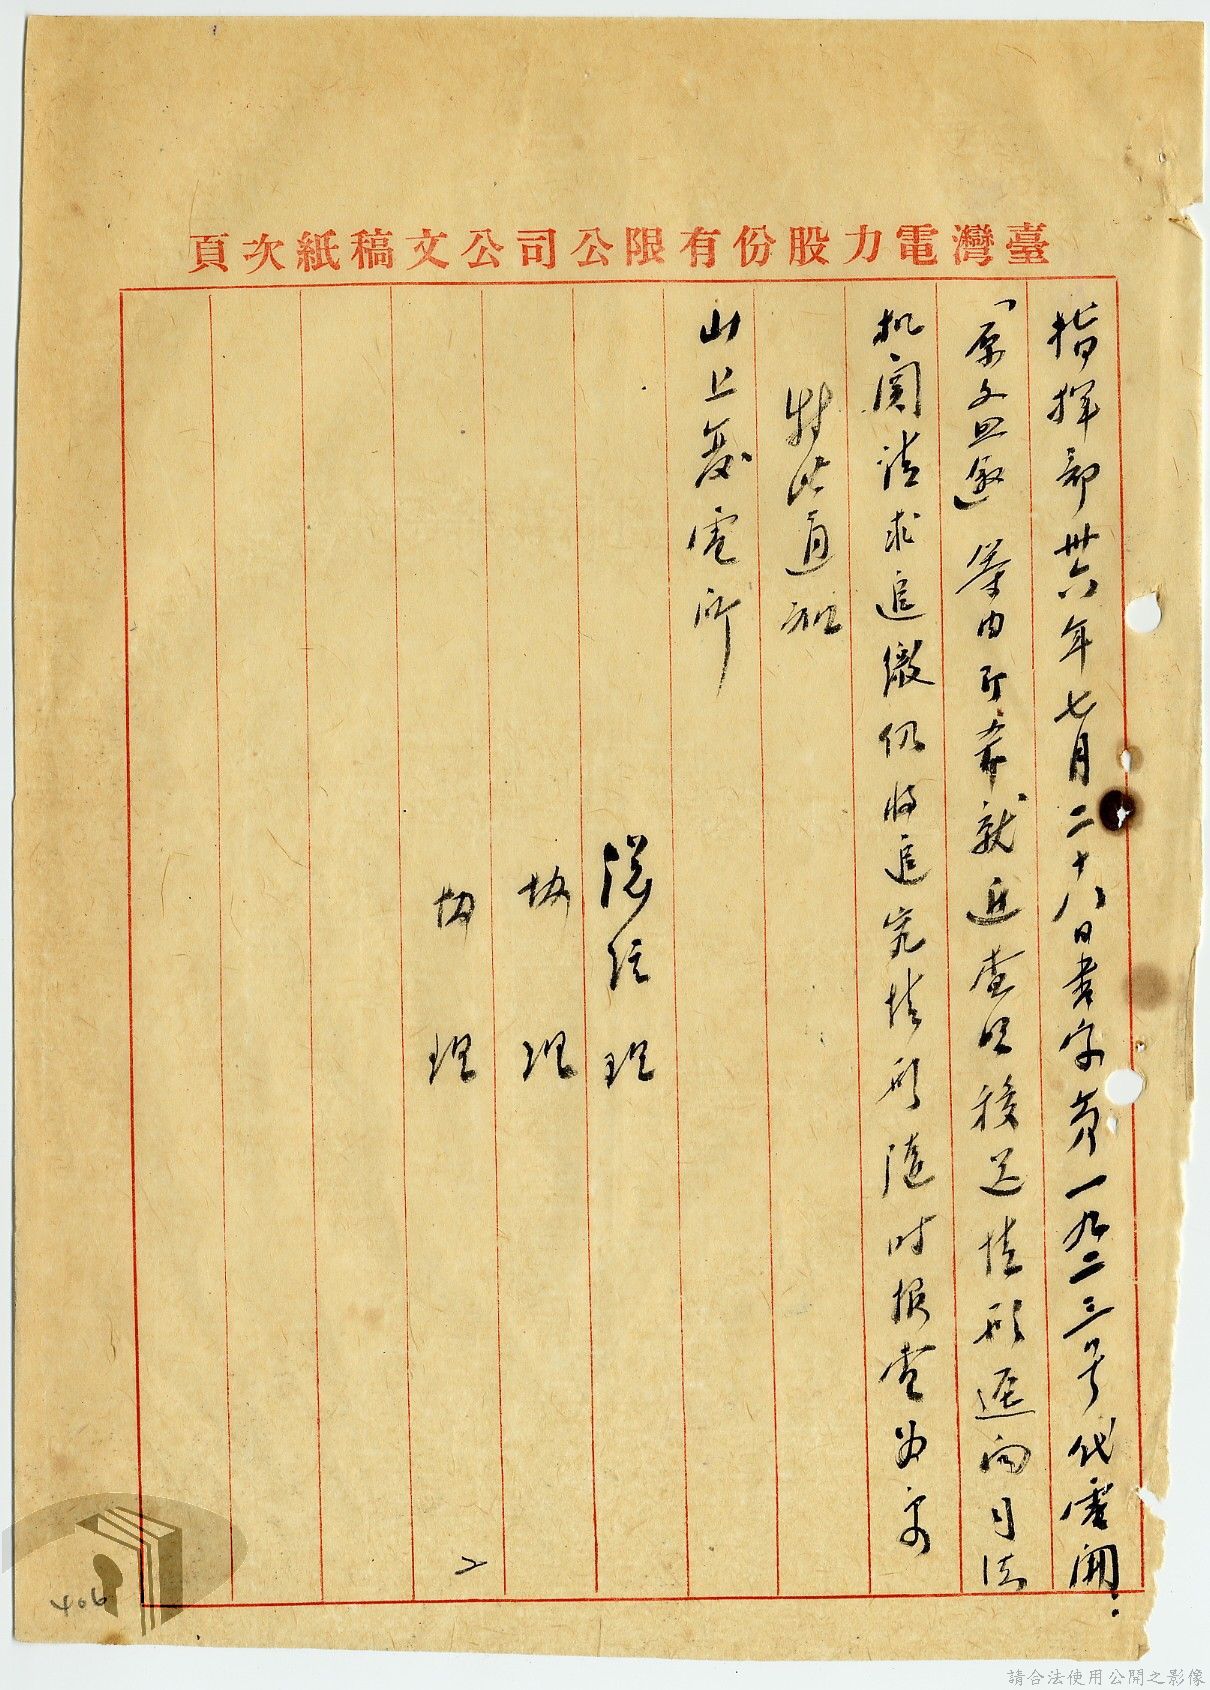 臺灣電力股份有限公司公文稿紙次頁
指揮部卅六年七月二十八日書字第一九二三号代電開：
「原文照敘」等由即希就近查照移送情形逕向司法
机関請求追繳仍將追究情形隨時报查为要
特此通知
山上变電所
總经理
協理
協理
406
請合法使用公開之影像